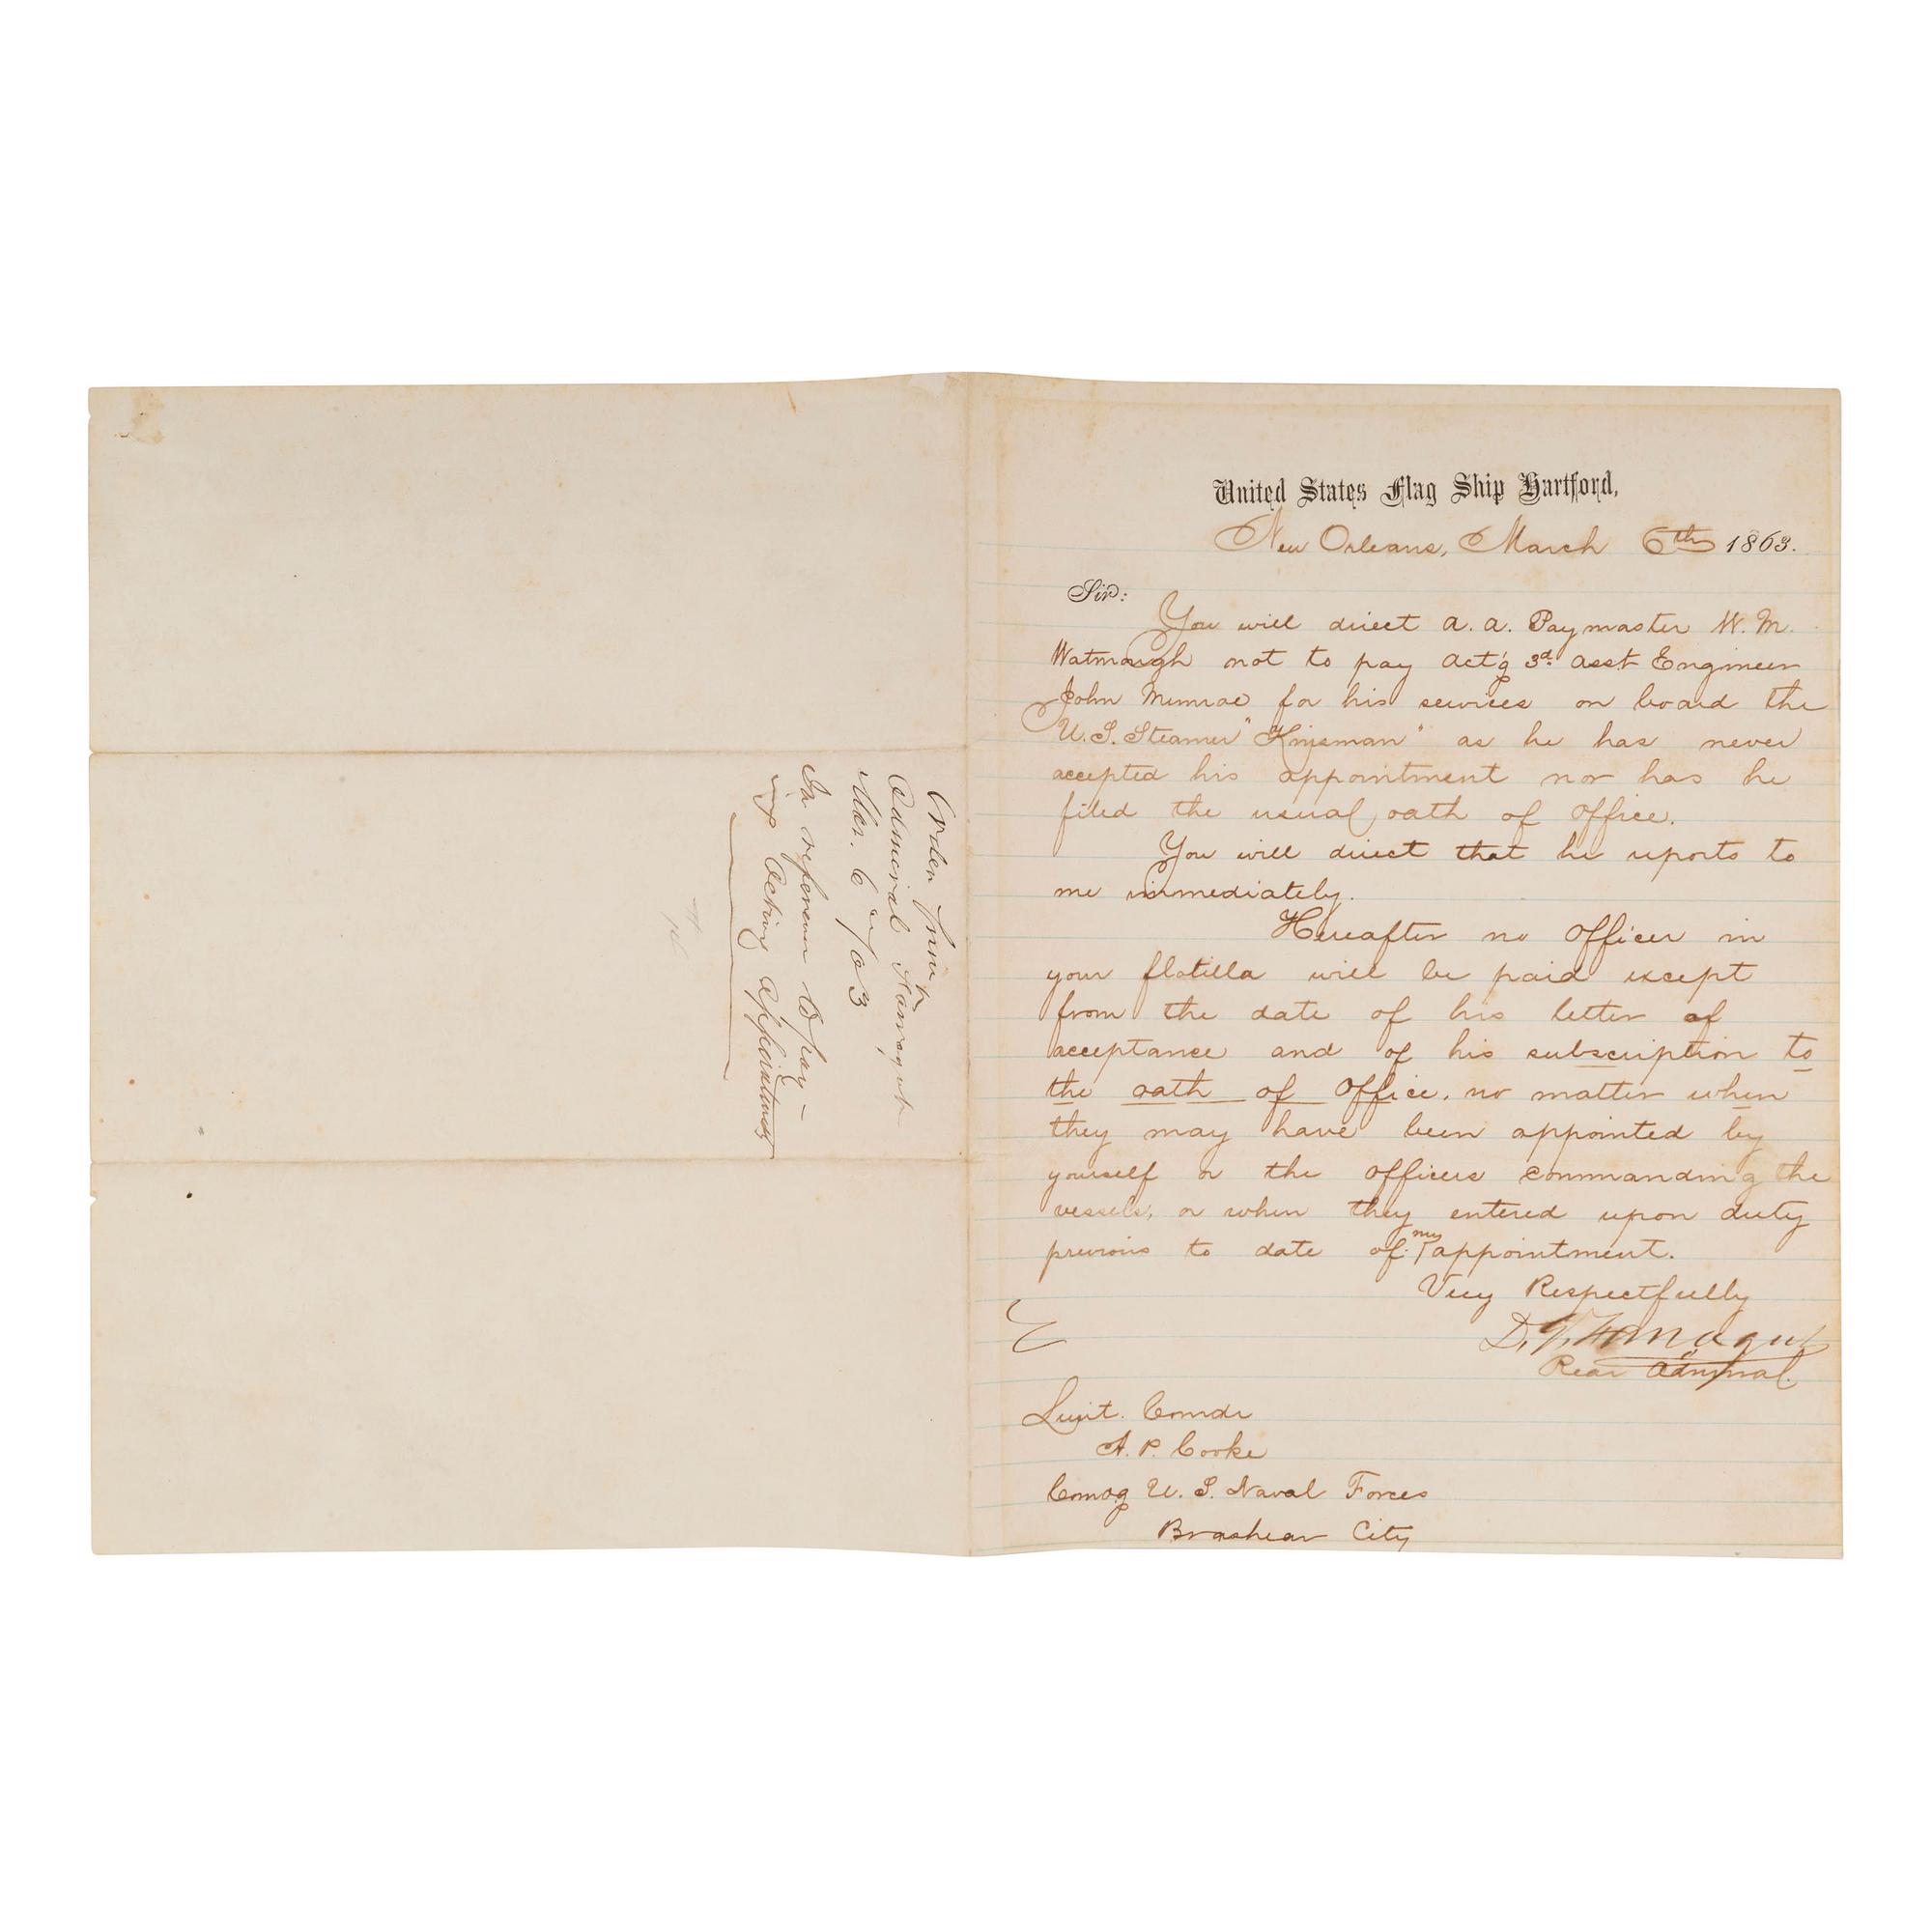 United States Flag Ship Hartford,
New Orleans, March 6th 1863.
Sir:
You will direct A. A. Paymaster W. M.
Watmough not to pay Act'g 3d. Asst Engineer
John Munroe for his services on board the
U.S. Steamer "Kinsman" as he has never
accepted his appointment nor has he
filed the usual oath of office.
You will direct that he reports to
me immediately.
Hereafter no Officer in
your flotilla will be paid except
from the date of his letter of
acceptance and of his subscription to
the oath of Office, no matter when
they may have been appointed by
yourself or the officers commanding the
vessels, or when they entered upon duty
previous to date of my appointment.
Very Respectfully
D. G. Farragut
Rear Admiral.
Lieut. Comdr
A. P. Cooke
Comdg U. S. Naval Forces
Brashear City
Order from
Admiral Farragut
Mar. 6 /63
In reference to pay-
ing Acting Appointments